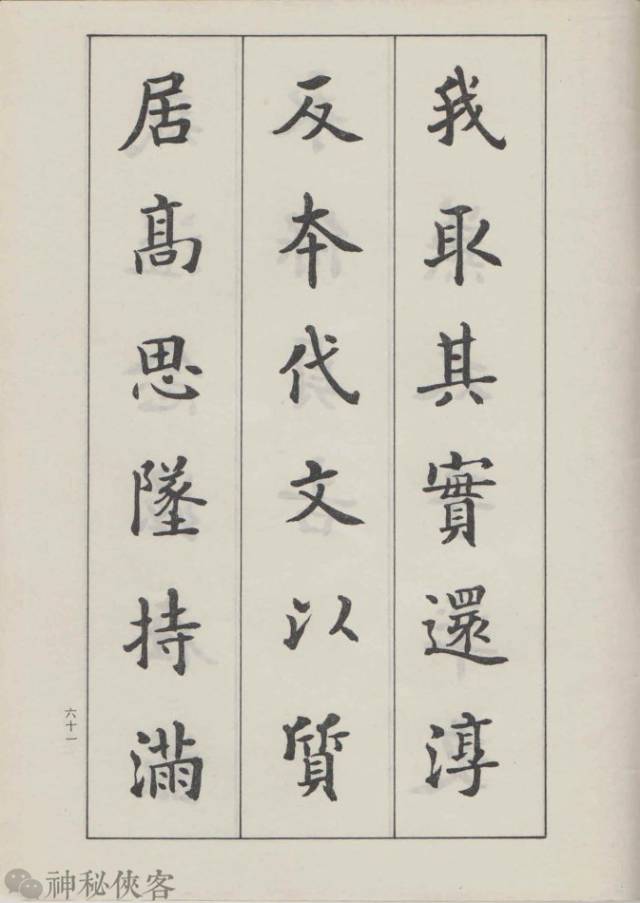 我取其實還淳
反本代文以質
居高思墜持滿
六十一
神秘俠客